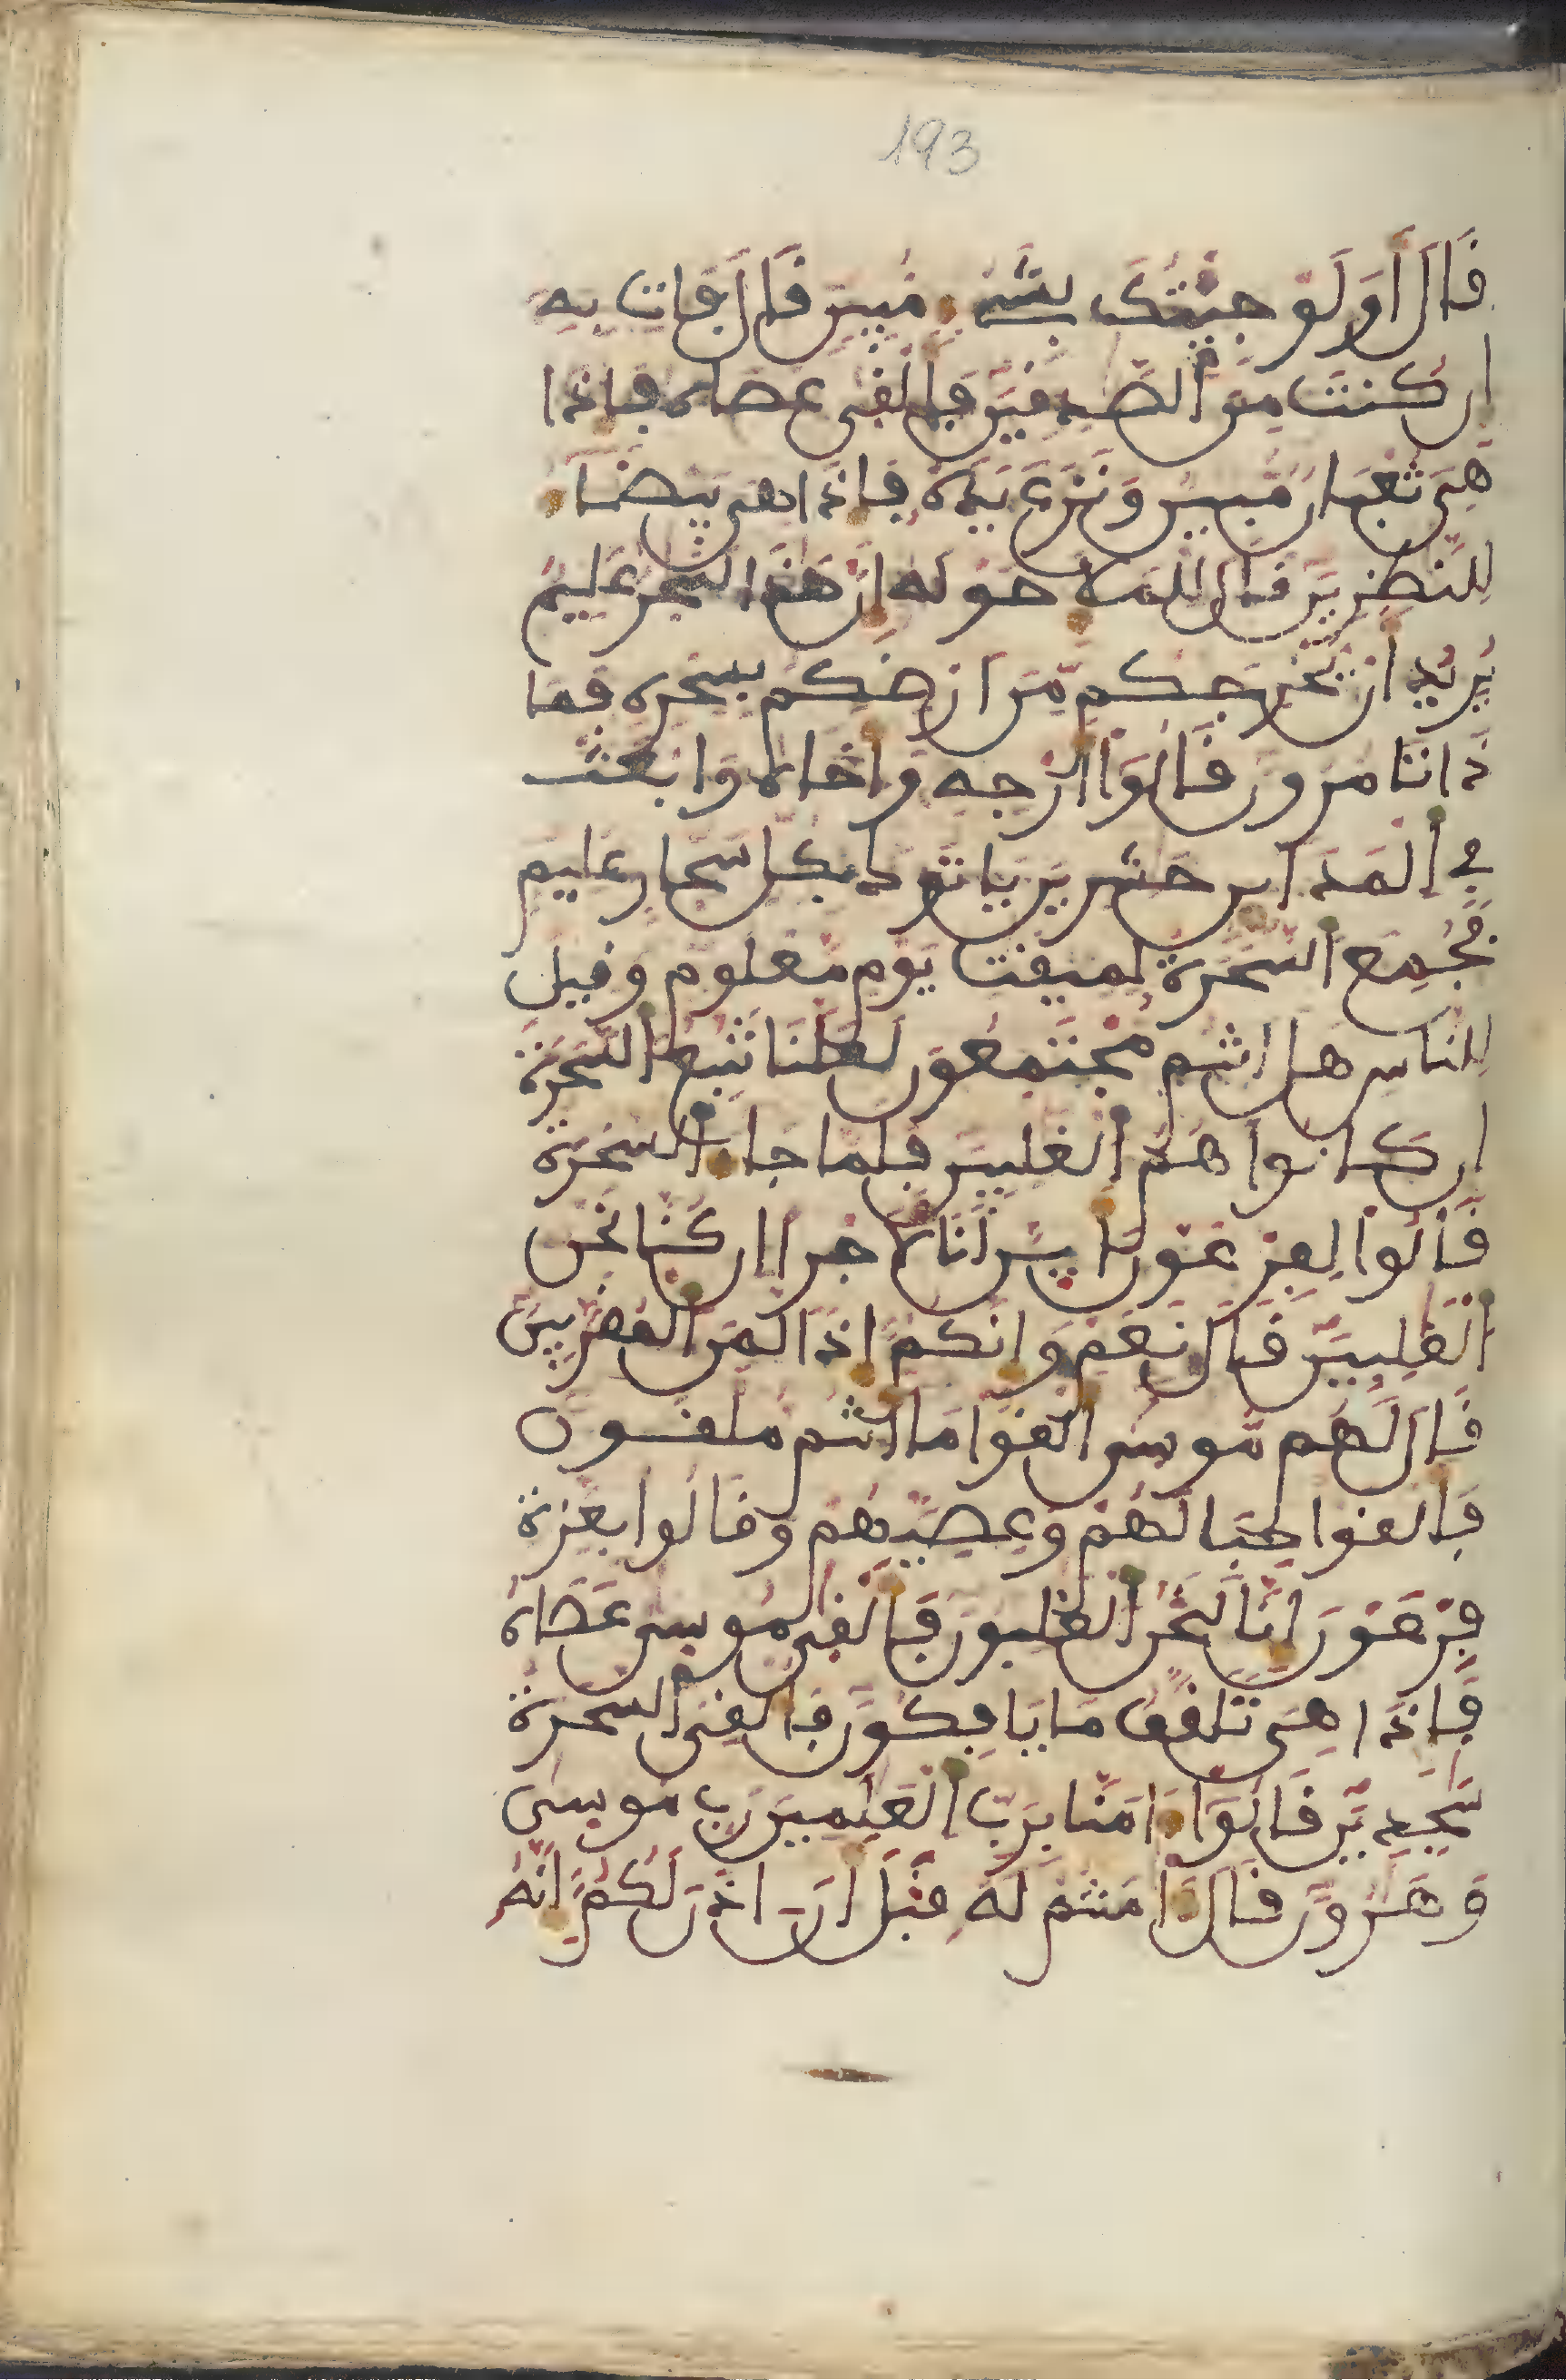 193
قَالَ أَوَلَوْ جِئْتُكَ بِشَےْءٖ مُّبِينٖ قَالَ فَاتِ بِهِۦ
إن كنتَ مِنَ ألصَّٰدِقِينَ فَأَلْقٜىٰ عصاه فإذا
هِىَ ثُعْبَانٌ مُّبِينٌ وَنَزَعَ يَدَهُۥ فَإِذَا هى بَيْضَآءُ
لِلنَّٰظِرِينَ قَالَ لِلْمَلَإِ حَوْلَهُۥ إِنَّ هَٰذَا لَسَٰحِرٌ عَلِيمٌ
يُرِيدُ أَنْ يُّخْرِجَكُم مِّنَ أَرْضِكُم بِسِحْرِهِۦ فَمَا
ذَا تَامُرُونَ قَالُوٓاْ أَرْجِهِ وَأَخَاهُ وَابْعَثْ
فِي ألْمَدَآئِنِ حَٰشِرِينَ يَاتُوكَ بِكُلِّ سَحَّارٍ عَلِيمٖ
فَجُمِعَ ألسَّحَرَةُ لِمِيقَٰتِ يَوْمٖ مَّعْلُومٖ وَقِيلَ
لِلنَّاسِ هَلَ أَنتُم مُّجْتَمِعُونَ لَعَلَّنَا نَتَّبِعُ ألسَّحَرَةَ
إن كَانُواْ هُمُ ألْغَٰلِبِينَ فَلَمَّا جَآءَ ألسَّحَرَةُ
قَالُواْ لِفِرْعَوْنَ أَئِنَّ لَنَا لَأَجْرًا إِن كُنَّا نَحْنُ
ألْغَٰلِبِينَ قَالَ نَعَمْ وَإِنَّكُمُۥٓ إِذًا لَّمِنَ ألْمُقَرَّبِينَ
قَالَ لَهُم مُّوسٜىٰٓ أَلْقُواْ مَآ أَنتُم مُّلْقُونَ
فَأَلْقَوْاْ حِبَالَهُمْ وَعِصِيَّهُمْ وَقَالُواْ بِعِزَّةِ
فِرْعَوْنَ إِنَّا لَنَحْنُ ألْغَٰلِبُونَ فَأَلْقٜىٰ مُوسٜىٰ عَصَاهُ
فَإِذَا هِىَ تَلَقَّفُ مَا يَافِكُونَ فَأُلْقِىَ ألسَّحَرَةُ
سَٰجِدِينَ قَالُوٓاْ ءَامَنَّا بِرَبِّ ألْعَٰلَمِينَ رَبِّ مُوسٜىٰ
وَهَٰرُونَ قَالَ ءَامَنتُمْ لَهُۥ قَبْلَ أَنَ اذَنَ لَكُمُۥٓ إِنَّهُۥ